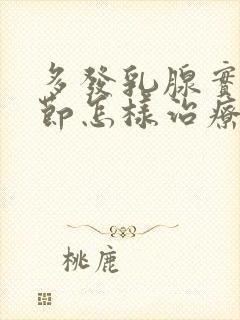 多發乳腺實
節怎樣治療
桃鹿